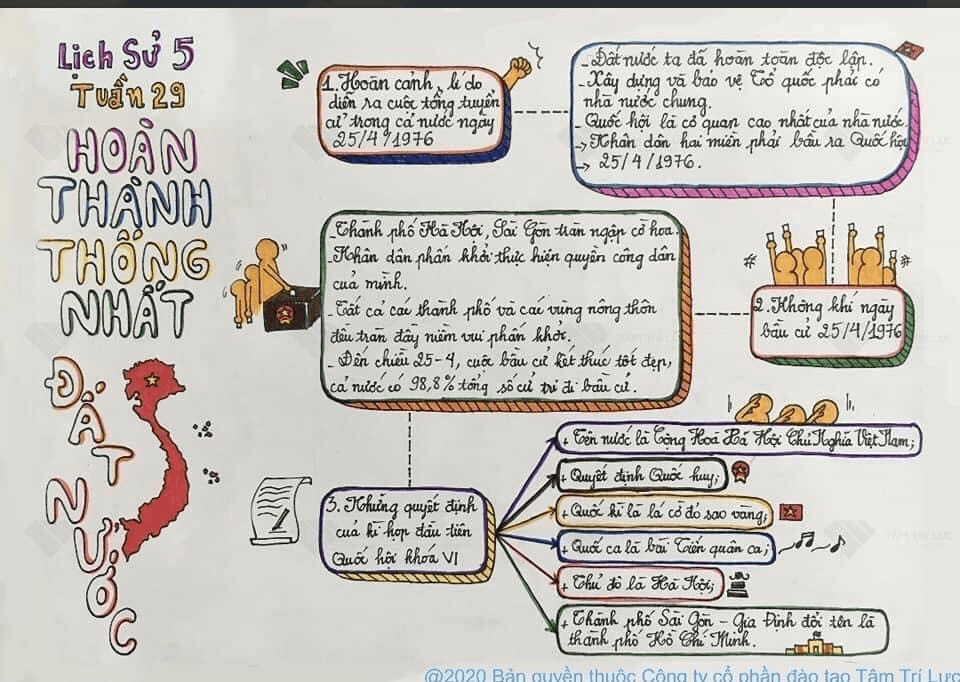 Lịch Sử 5
Tuần 29
HOÀN
THÀNH
THỐNG
NHẤT
ĐẤT NƯỚC
1. Hoàn cảnh, lí do
diễn ra cuộc tổng tuyển
cử trong cả nước ngày
25/4/1976
- Đất nước ta đã hoàn toàn độc lập.
- Xây dựng và bảo vệ Tổ quốc phải có
nhà nước chung.
- Quốc hội là cơ quan cao nhất của nhà nước.
→ Nhân dân hai miền phải bầu ra Quốc hội
→ 25/4/1976.
- Thành phố Hà Nội, Sài Gòn tràn ngập cờ hoa.
- Nhân dân phấn khởi thực hiện quyền công dân
của mình.
- Tất cả các thành phố và các vùng nông thôn
đều tràn đầy niềm vui phấn khởi.
- Đến chiều 25-4, cuộc bầu cử kết thúc tốt đẹp,
cả nước có 98,8% tổng số cử tri đi bầu cử.
2. Không khí ngày
bầu cử 25/4/1976
3. Những quyết định
của kì họp đầu tiên
Quốc hội khoá VI
+ Tên nước là Cộng Hoà Xã Hội Chủ Nghĩa Việt Nam;
+ Quyết định Quốc huy;
+ Quốc kì là lá cờ đỏ sao vàng;
+ Quốc ca là bài Tiến quân ca;
+ Thủ đô là Hà Nội;
+ Thành phố Sài Gòn - Gia Định đổi tên là
thành phố Hồ Chí Minh.
@2020 Bản quyền thuộc Công ty cổ phần đào tạo Tâm Trí Lực